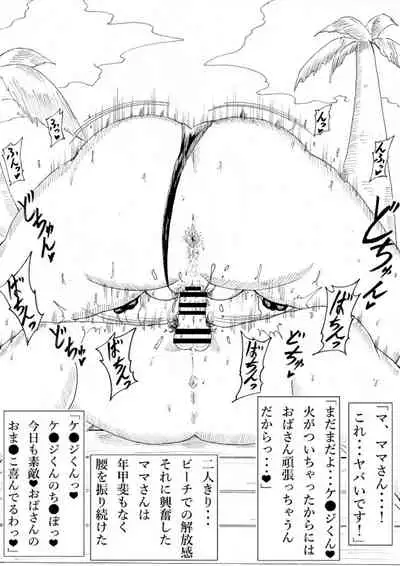 「マ、ママさん・・・・！
これ・・・ヤバいです！」
「まだまだよ・・・ケ●ジくん♥
火がついちゃったからには
おばさん頑張っちゃうん
だからっ・・・♥」
二人きり・・・
ビーチでの解放感
それに興奮した
ママさんは
年甲斐もなく
腰を振り続けた
「ケ●ジくんっ♥
ケ●ジくんのち●ぽっ♥
今日も素敵♥おばさんの
おま●こ喜んでるわっ♥」
んふっ♥
どちゅんっ♥
ばちんっ
どちゅ♥
ばちんっ
ふっ♥
ふんっ♥
どちゃんっ
ばちんっ
どちゅ♥
ばちんっ